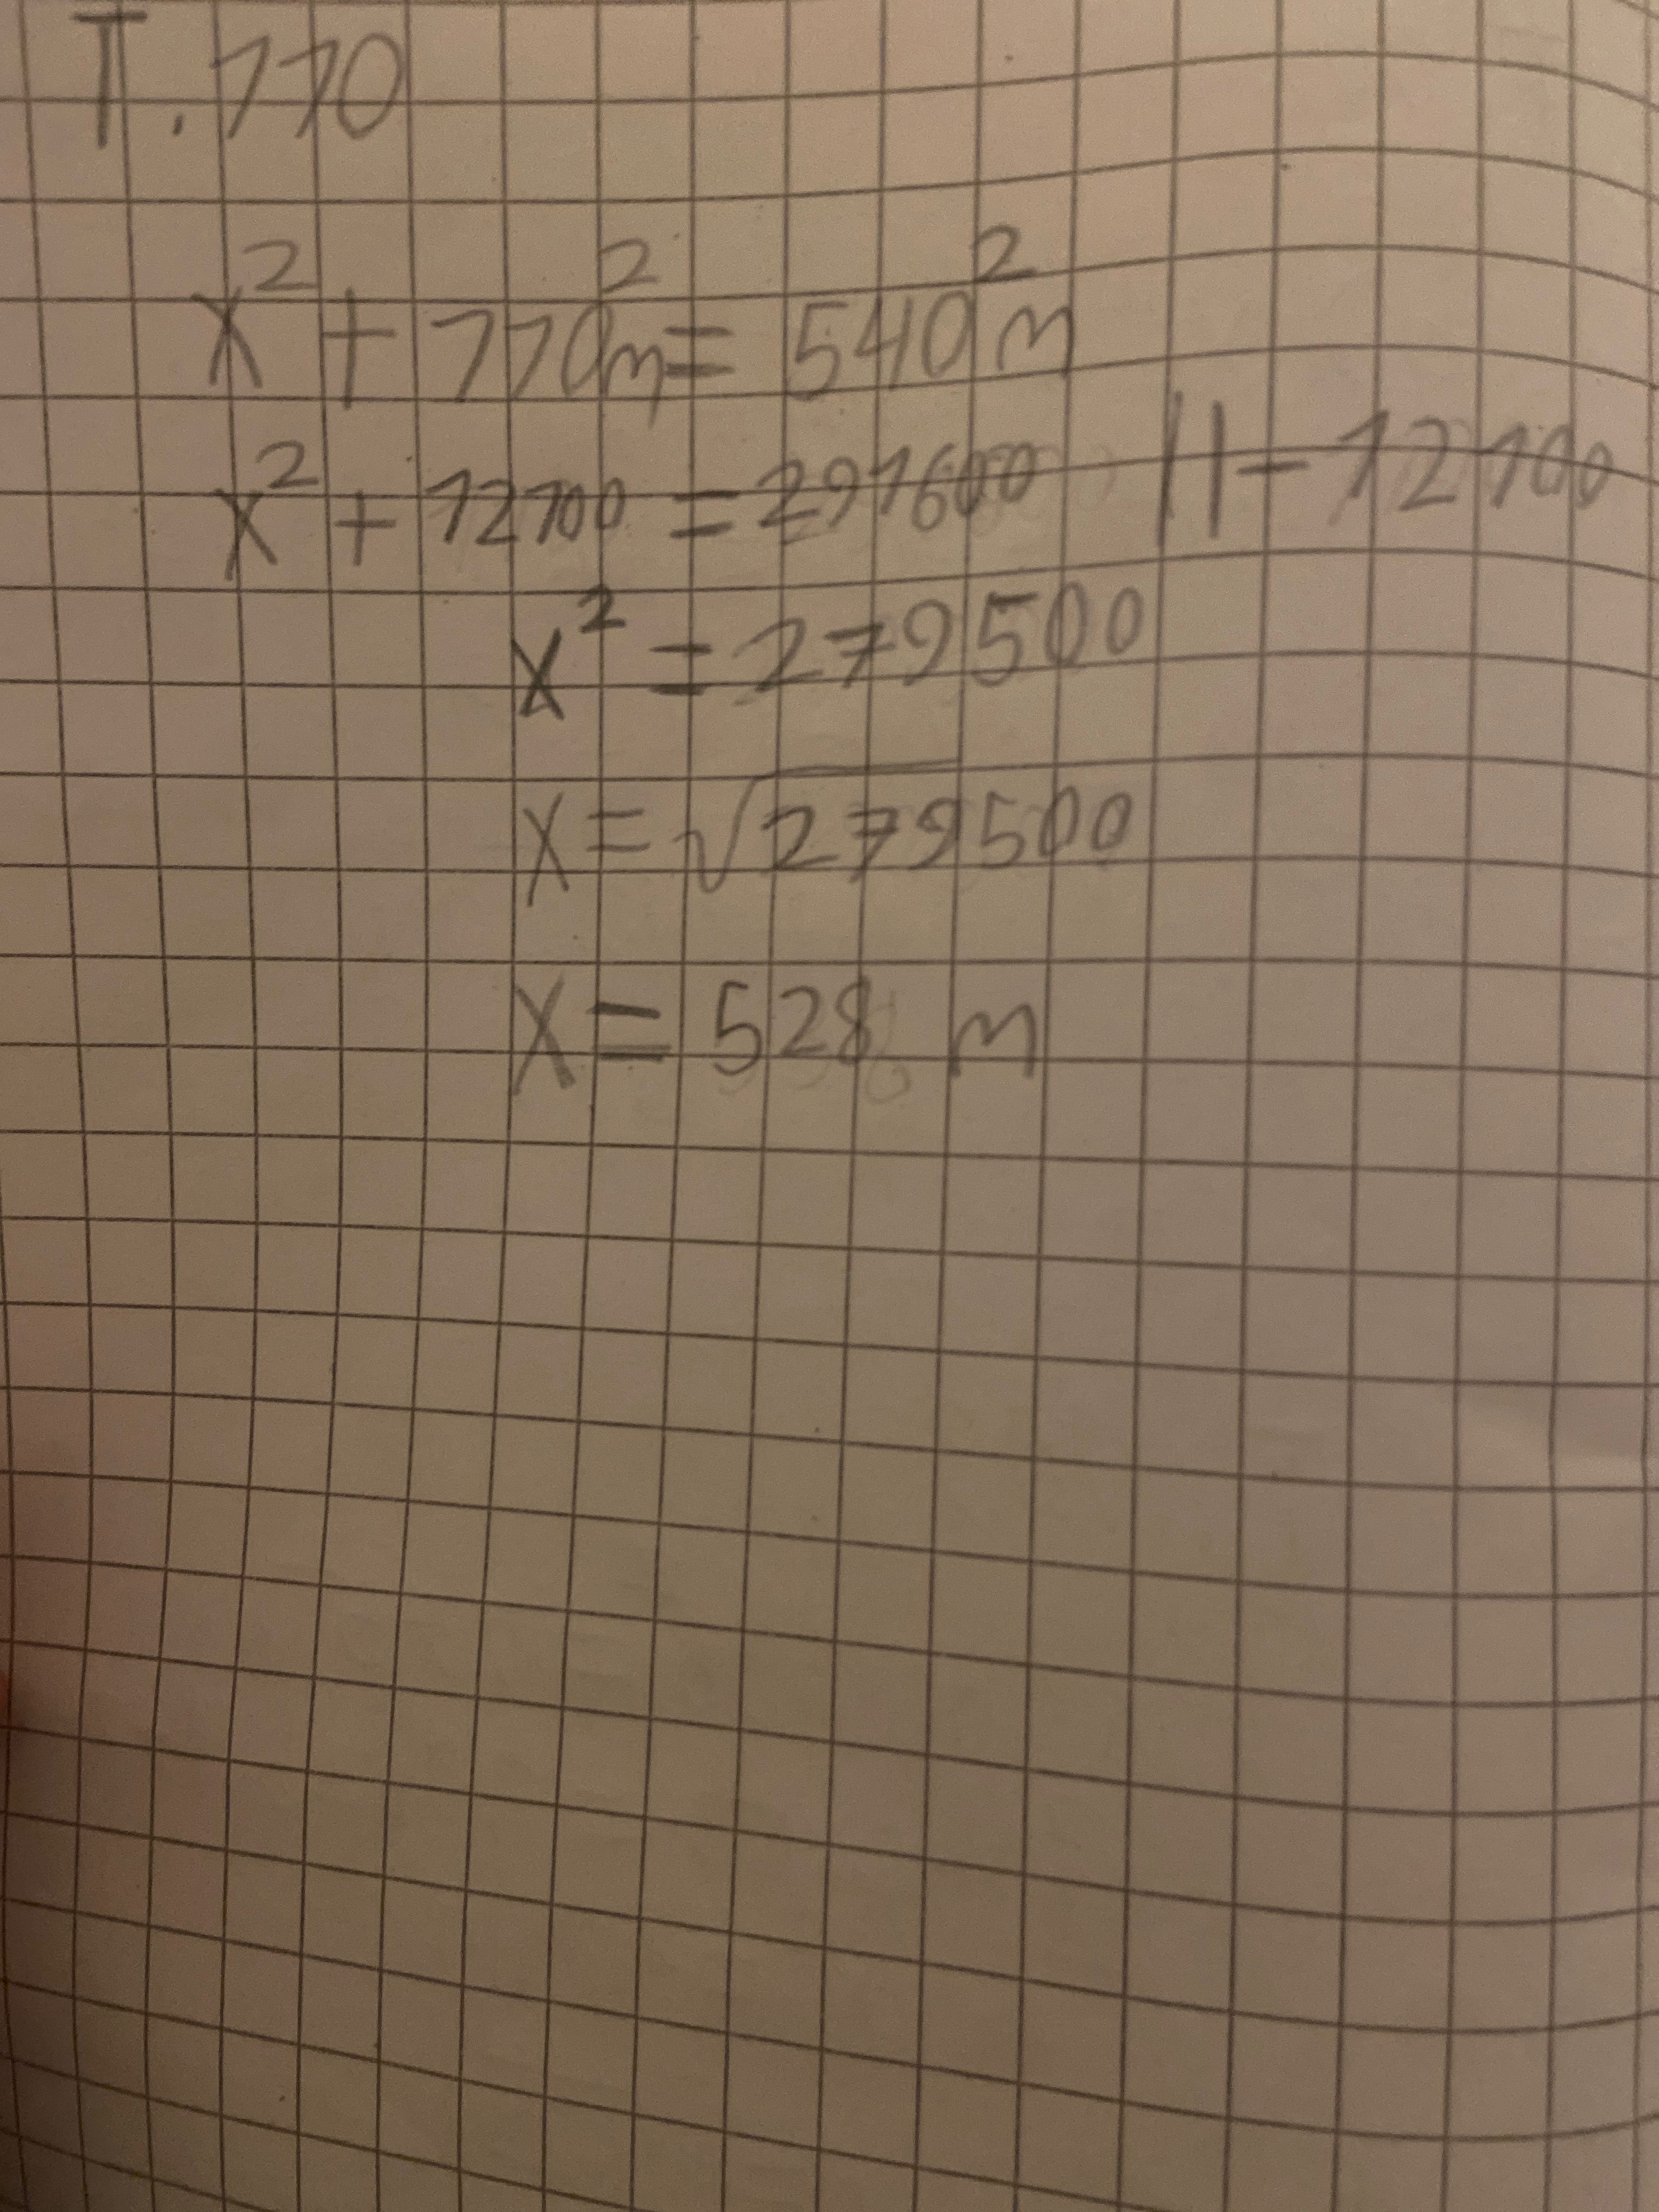 T.110
x² + 110²m = 540²m
x² + 12100 = 291600 || - 12100
x² = 279500
x = √279500
x = 528 m